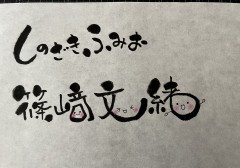 しのざきふみお
篠﨑文緒